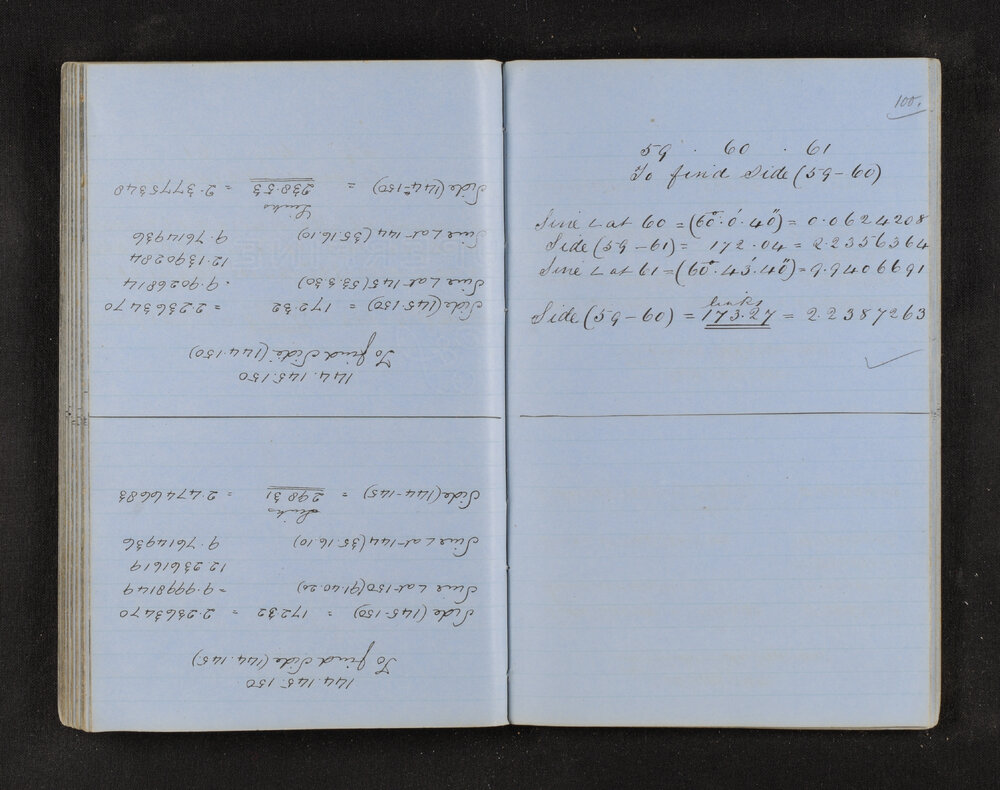 144.145.150
To find Side (144.145)
Side (145-150) = 172.32 = 2.2363470
Sine ∠ at 150 (91.40.20) = 9.9998149
12.2361619
Sine ∠ at 144 (35.16.10) 9.7614936
Links
Side (144-145) = 298.31 = 2.4746683
144.145.150
To find Side (144.150)
Side (145.150) = 172.32 = 2.2363470
Sine ∠ at 145 (53.5.30) 9.9026814
12.1390284
Sine ∠ at 144 (35.16.10) 9.7614936
Links
Side (144-150) = 238.53 = 2.3775348
100.
59 . 60 . 61
To find Side (59-60)
Sine ∠ at 60 = (60°.0'.40") = 0.0624208
Side (59-61) = 172.04 = 2.2356364
Sine ∠ at 61 = (60°.43'.40") = 9.9406691
links
Side (59-60) = 173.27 = 2.2387263